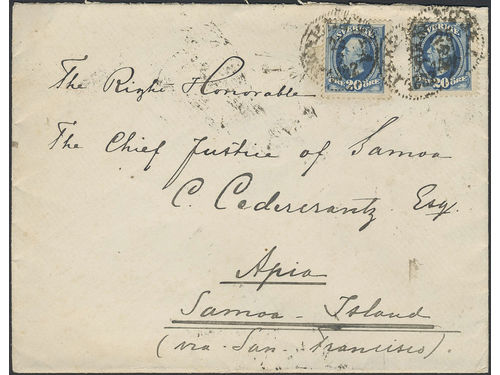 SVERIGE SVERIGE
20 ÖRE 20 ÖRE
The Right Honorable
The Chief Justice of Samoa
C. Cedercrantz Esq.
Apia
Samoa - Island
(via - San - Francisco).